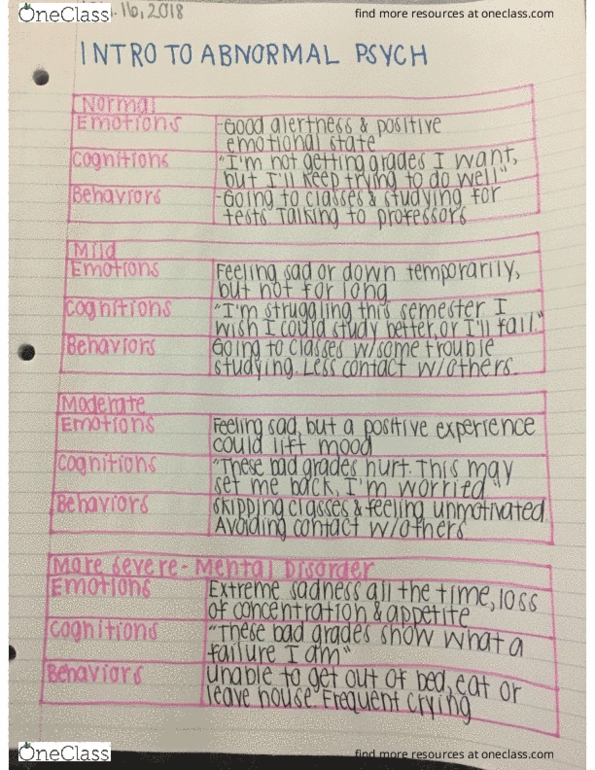 OneClass
find more resources at oneclass.com
16, 2018
INTRO TO ABNORMAL PSYCH
Normal
Emotions
-Good alertness & positive
emotional state
Cognitions
"I'm not getting grades I want,
but I'll keep trying to do well"
Behaviors
-Going to classes & studying for
tests. Talking to professors
Mild
Emotions
Feeling sad or down temporarily,
but not for long
Cognitions
"I'm struggling this semester I
wish I could study better, or I'll fail."
Behaviors
Going to classes w/some trouble
studying. Less contact w/others.
Moderate
Emotions
Feeling sad, but a positive experience
could lift mood
Cognitions
"These bad grades hurt. This may
set me back, I'm worried"
Behaviors
Skipping classes & feeling unmotivated.
Avoiding contact w/others.
More Severe - Mental Disorder
Emotions
Extreme sadness all the time, loss
of concentration & appetite
Cognitions
"These bad grades show what a
failure I am"
Behaviors
Unable to get out of bed, eat or
leave house. Frequent crying
OneClass
find more resources at oneclass.com